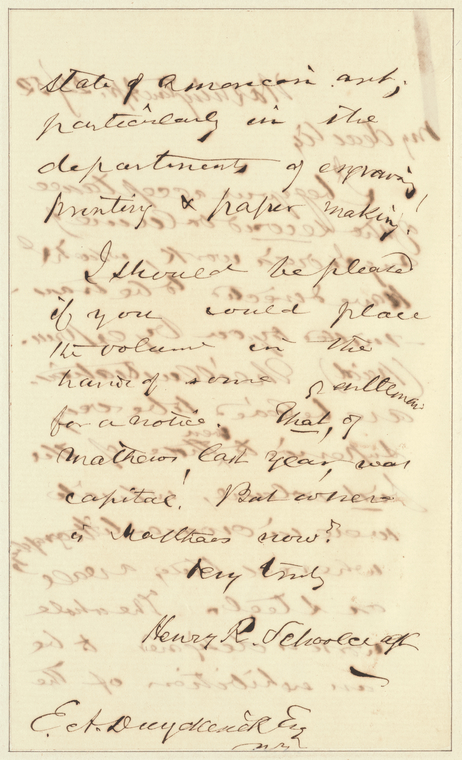 state of American art;
particularly in the
departments of engraving
printing & paper making!
I should be pleased
if you would place
the volume in the
hands of some gentleman
for a notice. That, of
Mathews, last year, was
capital! But where
is Matthews now?
Very truly
Henry R. Schoolcraft
E. A. Duyckinck Esq